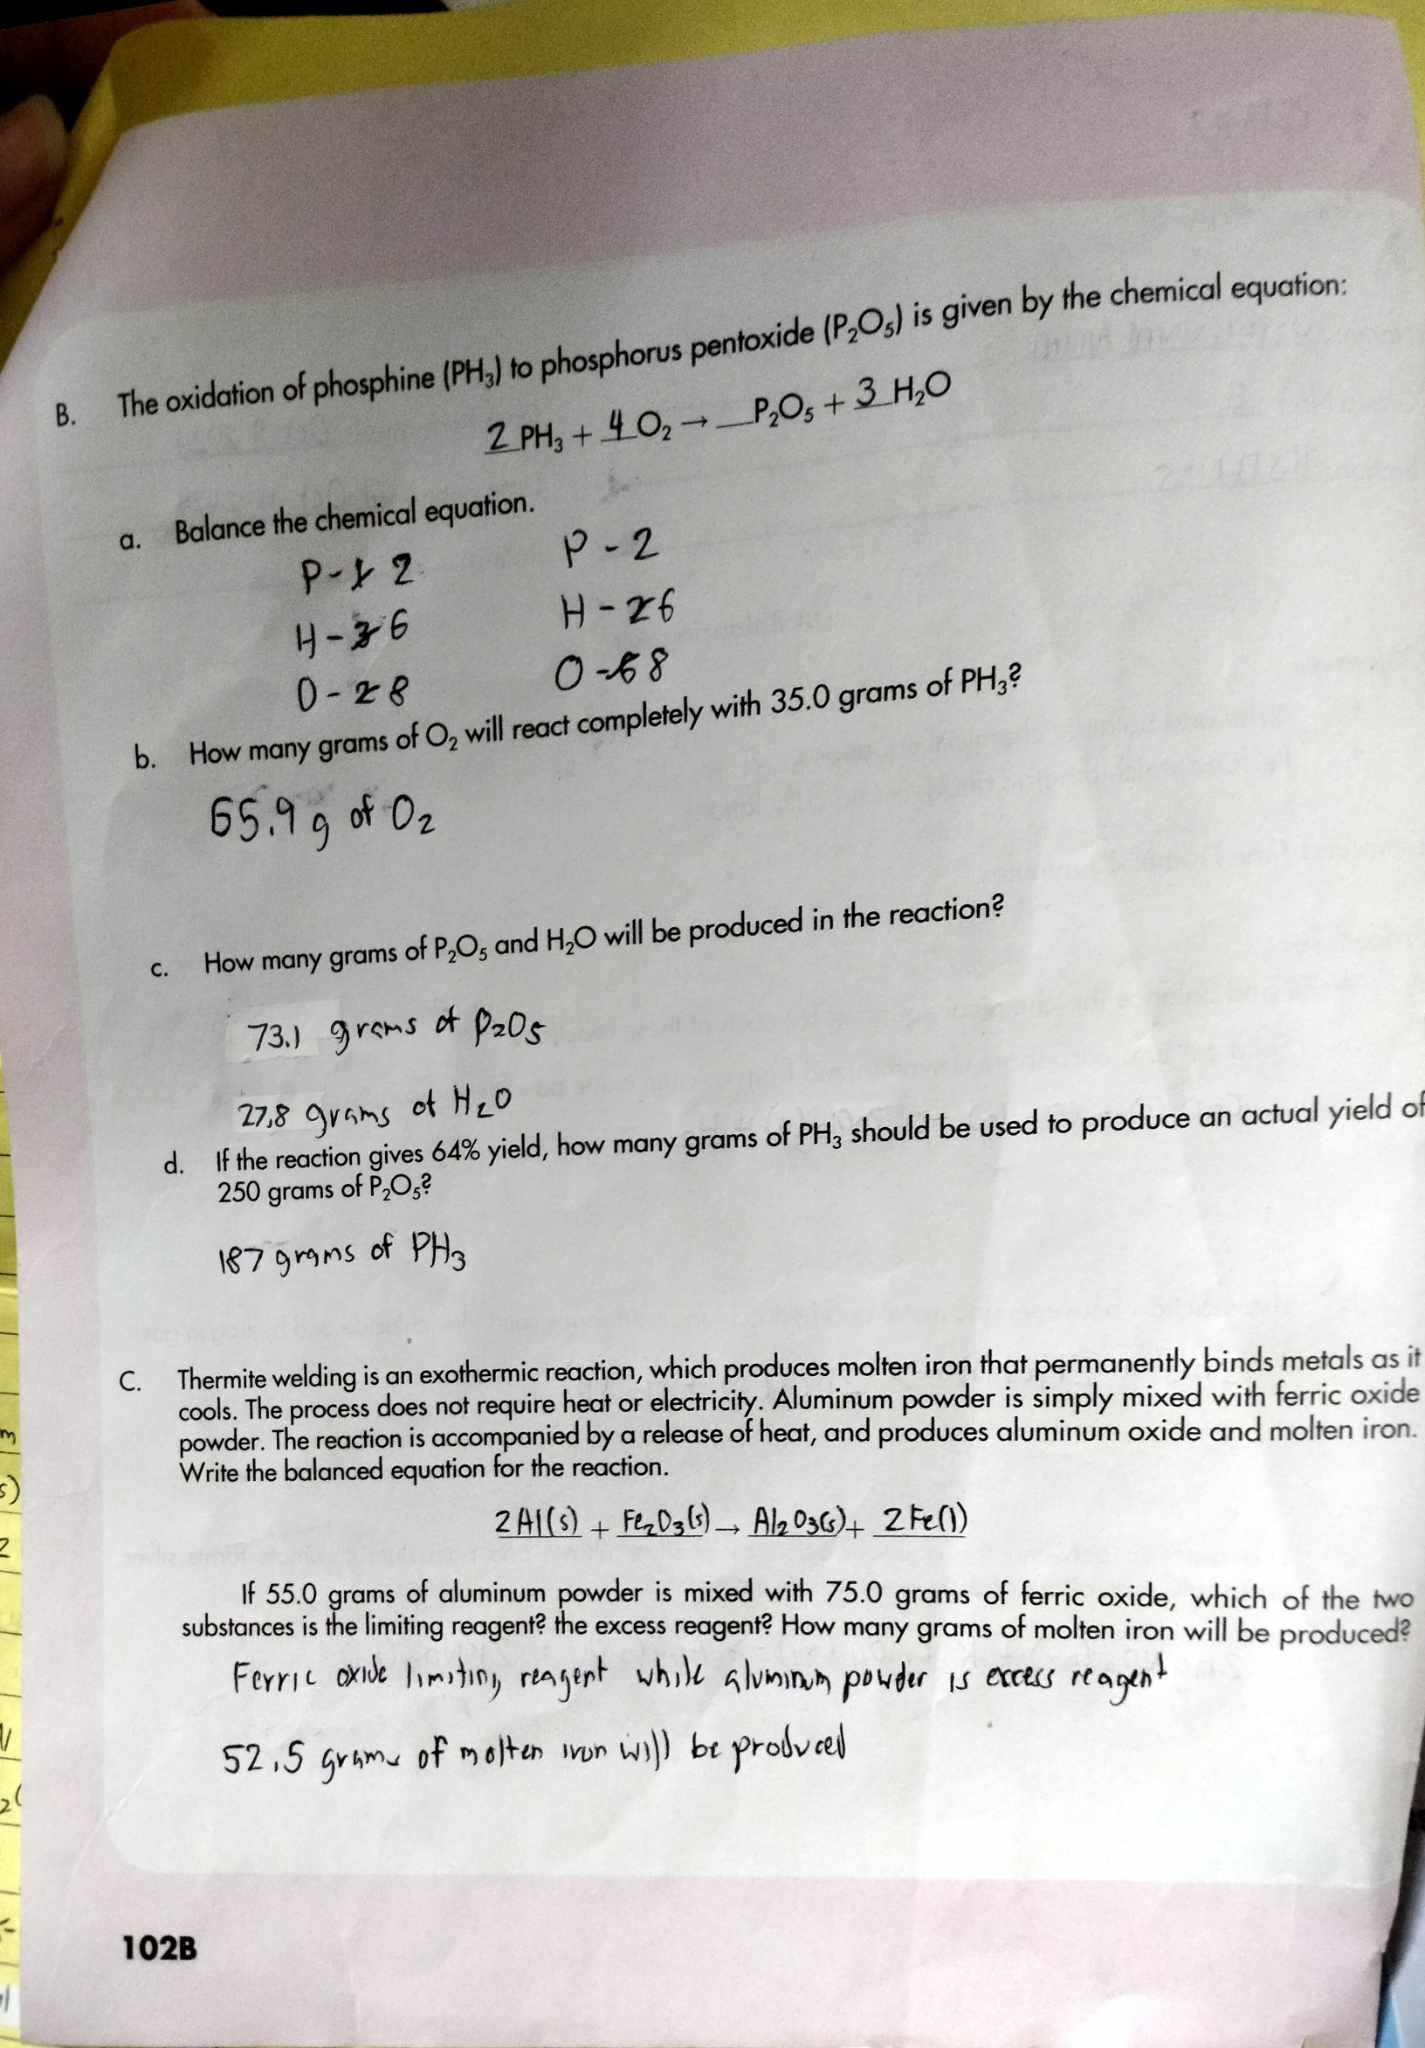 B. The oxidation of phosphine (PH₃) to phosphorus pentoxide (P₂O₅) is given by the chemical equation:
2 PH₃ + 4 O₂ → __P₂O₅ + 3 H₂O
a. Balance the chemical equation.
P-1 2 P - 2
H-3 6 H - 2 6
O-2 8 O-6 8
b. How many grams of O₂ will react completely with 35.0 grams of PH₃?
65.9 g of O₂
c. How many grams of P₂O₅ and H₂O will be produced in the reaction?
73.1 grams of P₂O₅
27.8 grams of H₂O
d. If the reaction gives 64% yield, how many grams of PH₃ should be used to produce an actual yield of
250 grams of P₂O₅?
187 grams of PH₃
C. Thermite welding is an exothermic reaction, which produces molten iron that permanently binds metals as it
cools. The process does not require heat or electricity. Aluminum powder is simply mixed with ferric oxide
powder. The reaction is accompanied by a release of heat, and produces aluminum oxide and molten iron.
Write the balanced equation for the reaction.
2Al(s) + Fe₂O₃(s) → Al₂O₃(s) + 2Fe(l)
If 55.0 grams of aluminum powder is mixed with 75.0 grams of ferric oxide, which of the two
substances is the limiting reagent? the excess reagent? How many grams of molten iron will be produced?
Ferric oxide limiting reagent while aluminum powder is excess reagent
52.5 grams of molten iron will be produced
102B